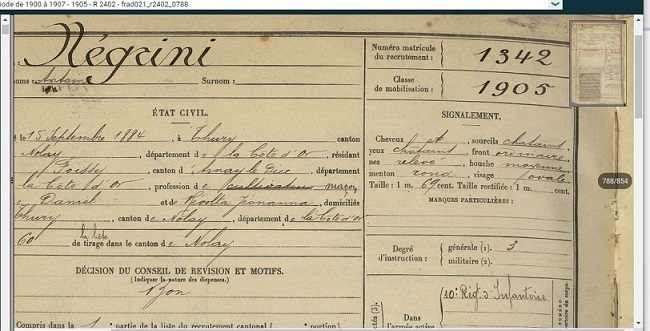 iode de 1900 à 1907 - 1905 - R 2402 - frad021_r2402_0788
Négrini
noms :
Surnom :
Numéro matricule du recrutement : 1342
Classe de mobilisation : 1905
ÉTAT CIVIL.
le 15 Septembre 1884, à Thury canton
Nolay, département de la Côte d'Or, résidant
Foissy, canton d'Arnay le Duc, département
la Côte d'Or, profession de cultivateur maçon,
e Daniel et de Jovanna, domiciliés
Thury, canton de Nolay, département de la Côte d'or
60 la liste
de tirage dans le canton de Nolay
DÉCISION DU CONSEIL DE REVISION ET MOTIFS.
(Indiquer la nature des dispenses.)
Bon
Compris dans la 1 partie de la liste du recrutement cantonal ( portion)
SIGNALEMENT.
Cheveux et sourcils chatains,
yeux chatains front ordinaire,
nez relevé, bouche moyenne
menton rond, visage ovale
Taille : 1 m. 69 cent. Taille rectifiée : 1 m. cent.
MARQUES PARTICULIÈRES :
Degré d'instruction :
générale (1). 3
militaire (2).
Dans l'armée active
10e Rég. d'Infanterie
788/854